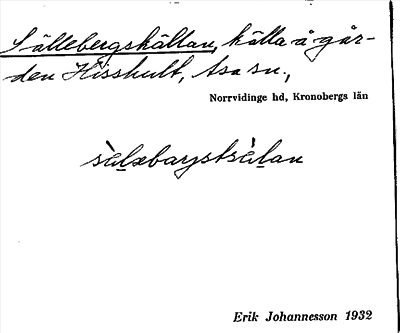 Sällebergskällan, källa å går-
den Hisshult, Asa sn.,
Norrvidinge hd, Kronobergs län
Erik Johannesson 1932